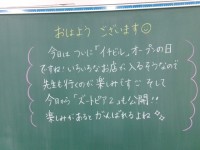 おはよう ございます☺
今日はついに「イチビル」オープンの日
ですね!いろいろなお店が入るそうなので
先生も行くのが楽しみです♡そして
今日から「ズートピア2」も公開!!
楽しみがあるとがんばれるよね